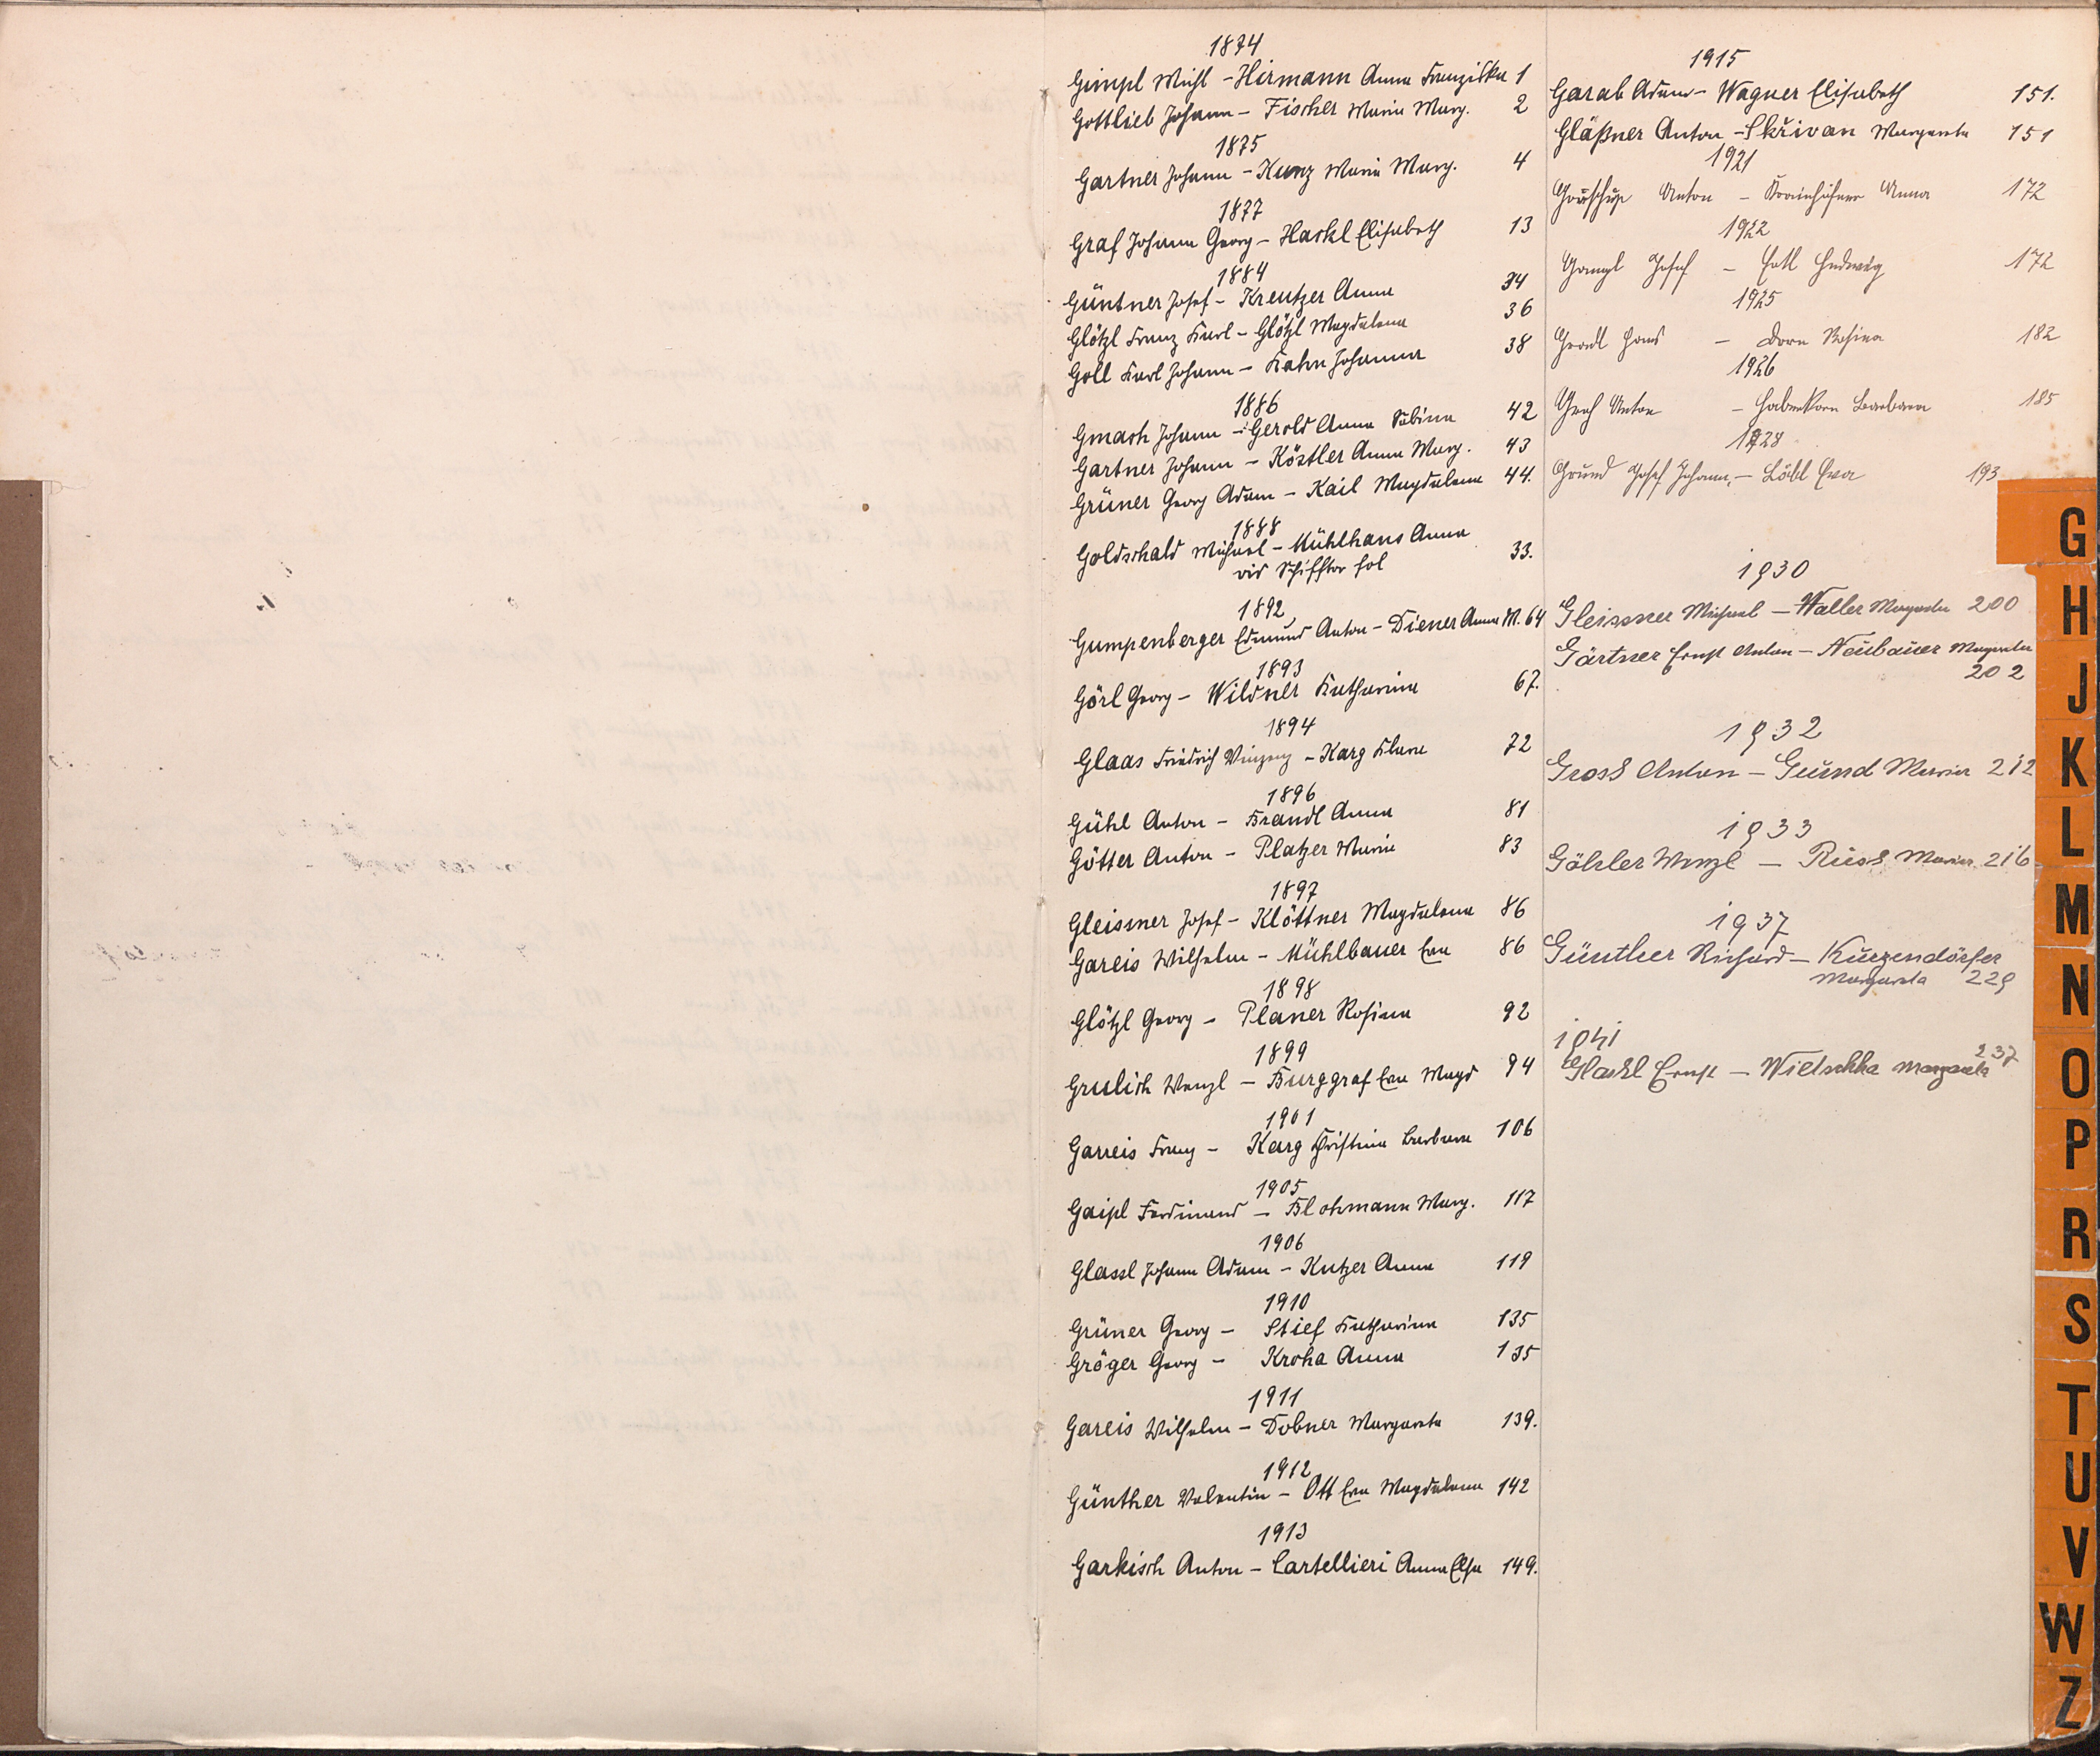 1874
Gimpl Michl - Hirmann Anna Franziska 1
Gottlieb Johann - Fischer Maria Marg. 2
1875
Gartner Johann - Kunz Maria Marg. 4
1877
Graf Johann Georg - Hackl Elisabeth 13
1884
Güntner Josef - Kreutzer Anna 34
Glötzl Franz Karl - Glötzl Magdalena 36
Goll Karl Johann - Hahn Johanna 38
1886
Gmach Johann - Gerold Anna Sabina 42
Gartner Johann - Köstler Anna Marg. 43
Grüner Georg Adam - Kail Magdalena 44.
1888
Goldschald Michael - Mühlhans Anna
vid Schifftor fol 33.
1892
Gumpenberger Edmund Anton - Diener Anna M. 64
1893
Görl Georg - Wildner Katharina 67.
1894
Glaas Friedrich Vinzenz - Karg Klara 72
1896
Gühl Anton - Brandl Anna 81
Götter Anton - Platzer Maria 83
1897
Gleisner Josef - Klöttner Magdalena 86
Gareis Wilhelm - Mühlbauer Eva 86
1898
Glötzl Georg - Planer Rosina 92
1899
Grulich Wenzl - Burggraf Eva Magd 94
1901
Garreis Franz - Karg Christina Barbara 106
1905
Gaipl Ferdinand - Blohmann Marg. 117
1906
Glassl Johann Adam - Kutzer Anna 119
1910
Grüner Georg - Stief Katharina 135
Gröger Georg - Kroha Anna 135
1911
Gareis Wilhelm - Dobner Margareta 139.
1912
Günther Valentin - Ott Eva Magdalena 142
1913
Garkisch Anton - Cartellieri Anna Elsa 149.
1915
Garab Adam - Wagner Elisabeth 151.
Gläßner Anton - Skřivan Margareta 151
1921
Anton - Anna 172
1922
Gampl Josef - Ertl Hedwig 172
1925
Gradl Hans - Dorn Rosina 182
1926
Graf Anton - Haberkorn Barbara 185
1928
Grund Josef Johann, - Löbl Eva 193
1930
Gleissner Michael - Waller Margareta 200
Gärtner Ernst Anton - Neubauer Margareta
202
1932
Gross Anton - Grund Maria 212
1933
Göhler Wenzl - Riess Maria 216
1937
Günther Richard - Kurzendörfer
Margareta 229
1941
237
Glassl Ernst - Wietschka Margareta
G
H
J
K
L
M
N
O
P
R
S
T
U
V
W
Z